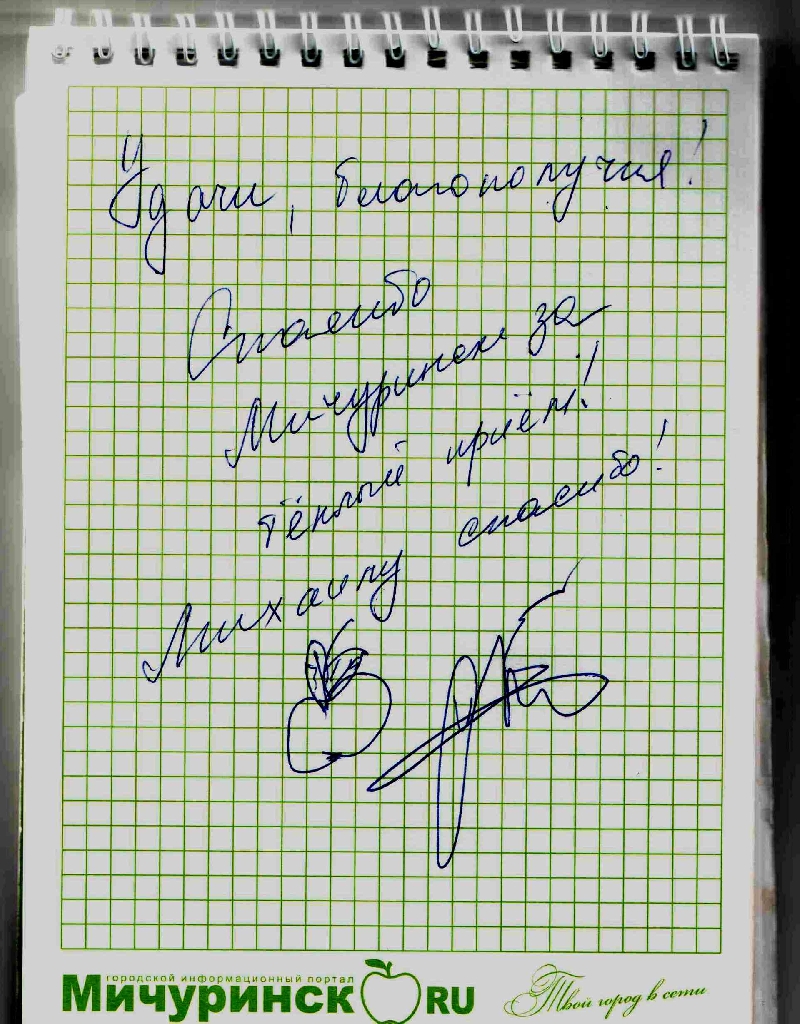 Удачи, благополучия!
Спасибо
Мичуринск за
тёплый приём!
Михаилу спасибо!
городской информационный портал
Мичуринск RU
Твой город в сети